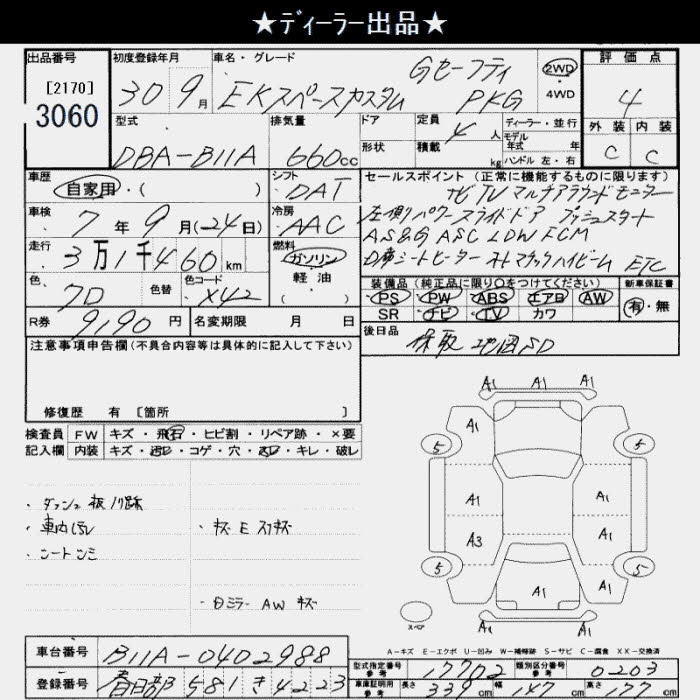 ★ディーラー出品★
出品番号 初度登録年月 車名・グレード 評価点
[2170]
3060
30 9月 EKスペースカスタム Gセーフティ PKG 2WD 4WD 4
型式 排気量 ドア 定員 ディーラー・並行 外装 内装
DBA-B11A 660cc 形状 積載 4人 kg モデル年式 年式 ハンドル 左・右 C C
車歴 シフト セールスポイント(正常に機能するものに限ります)
自家用・( ) DAT ナビTV マルチアラウンドモニター
車検 冷房 左側パワースライドドア プッシュスタート
7年9月(-24日) AAC AS&G ASC LDW FCM
走行 燃料
3万1千460km ガソリン シートヒーター オートマチックハイビーム ETC
色 色替 色コード 軽油 装備品(純正品に限り○をつけてください) 新車保証書
7D X42 ( ) PS PW ABS エアB AW 有・無
R券 9,190円 名変期限 月 日 SR ナビ TV カワ
注意事項申告欄(不具合内容等は具体的に記入して下さい) 後日品 保取 地図SD
修復歴 有 [箇所 ]
検査員 FW キズ・飛石・ヒビ割・リペア跡・×要
記入欄 内装 キズ・汚レ・コゲ・穴・スレ・キレ・破レ
A1 A1 A1
A1 A1
5 5
A1 A1
A3 A1
5 5
A1 A1
A1 A1 A1
・車内
・キズ E
・ミラー AW キズ
スペア
A-キズ E-エクボ U-凹み W-補修跡 S-サビ C-腐食 XX-交換済
車台番号 B11A-0402988 型式指定番号 参考 17702 類別区分番号 参考 0203
登録番号 春日部 581 き 4223 車庫証明用 参考 長さ 339cm 幅 147cm 高さ 177cm